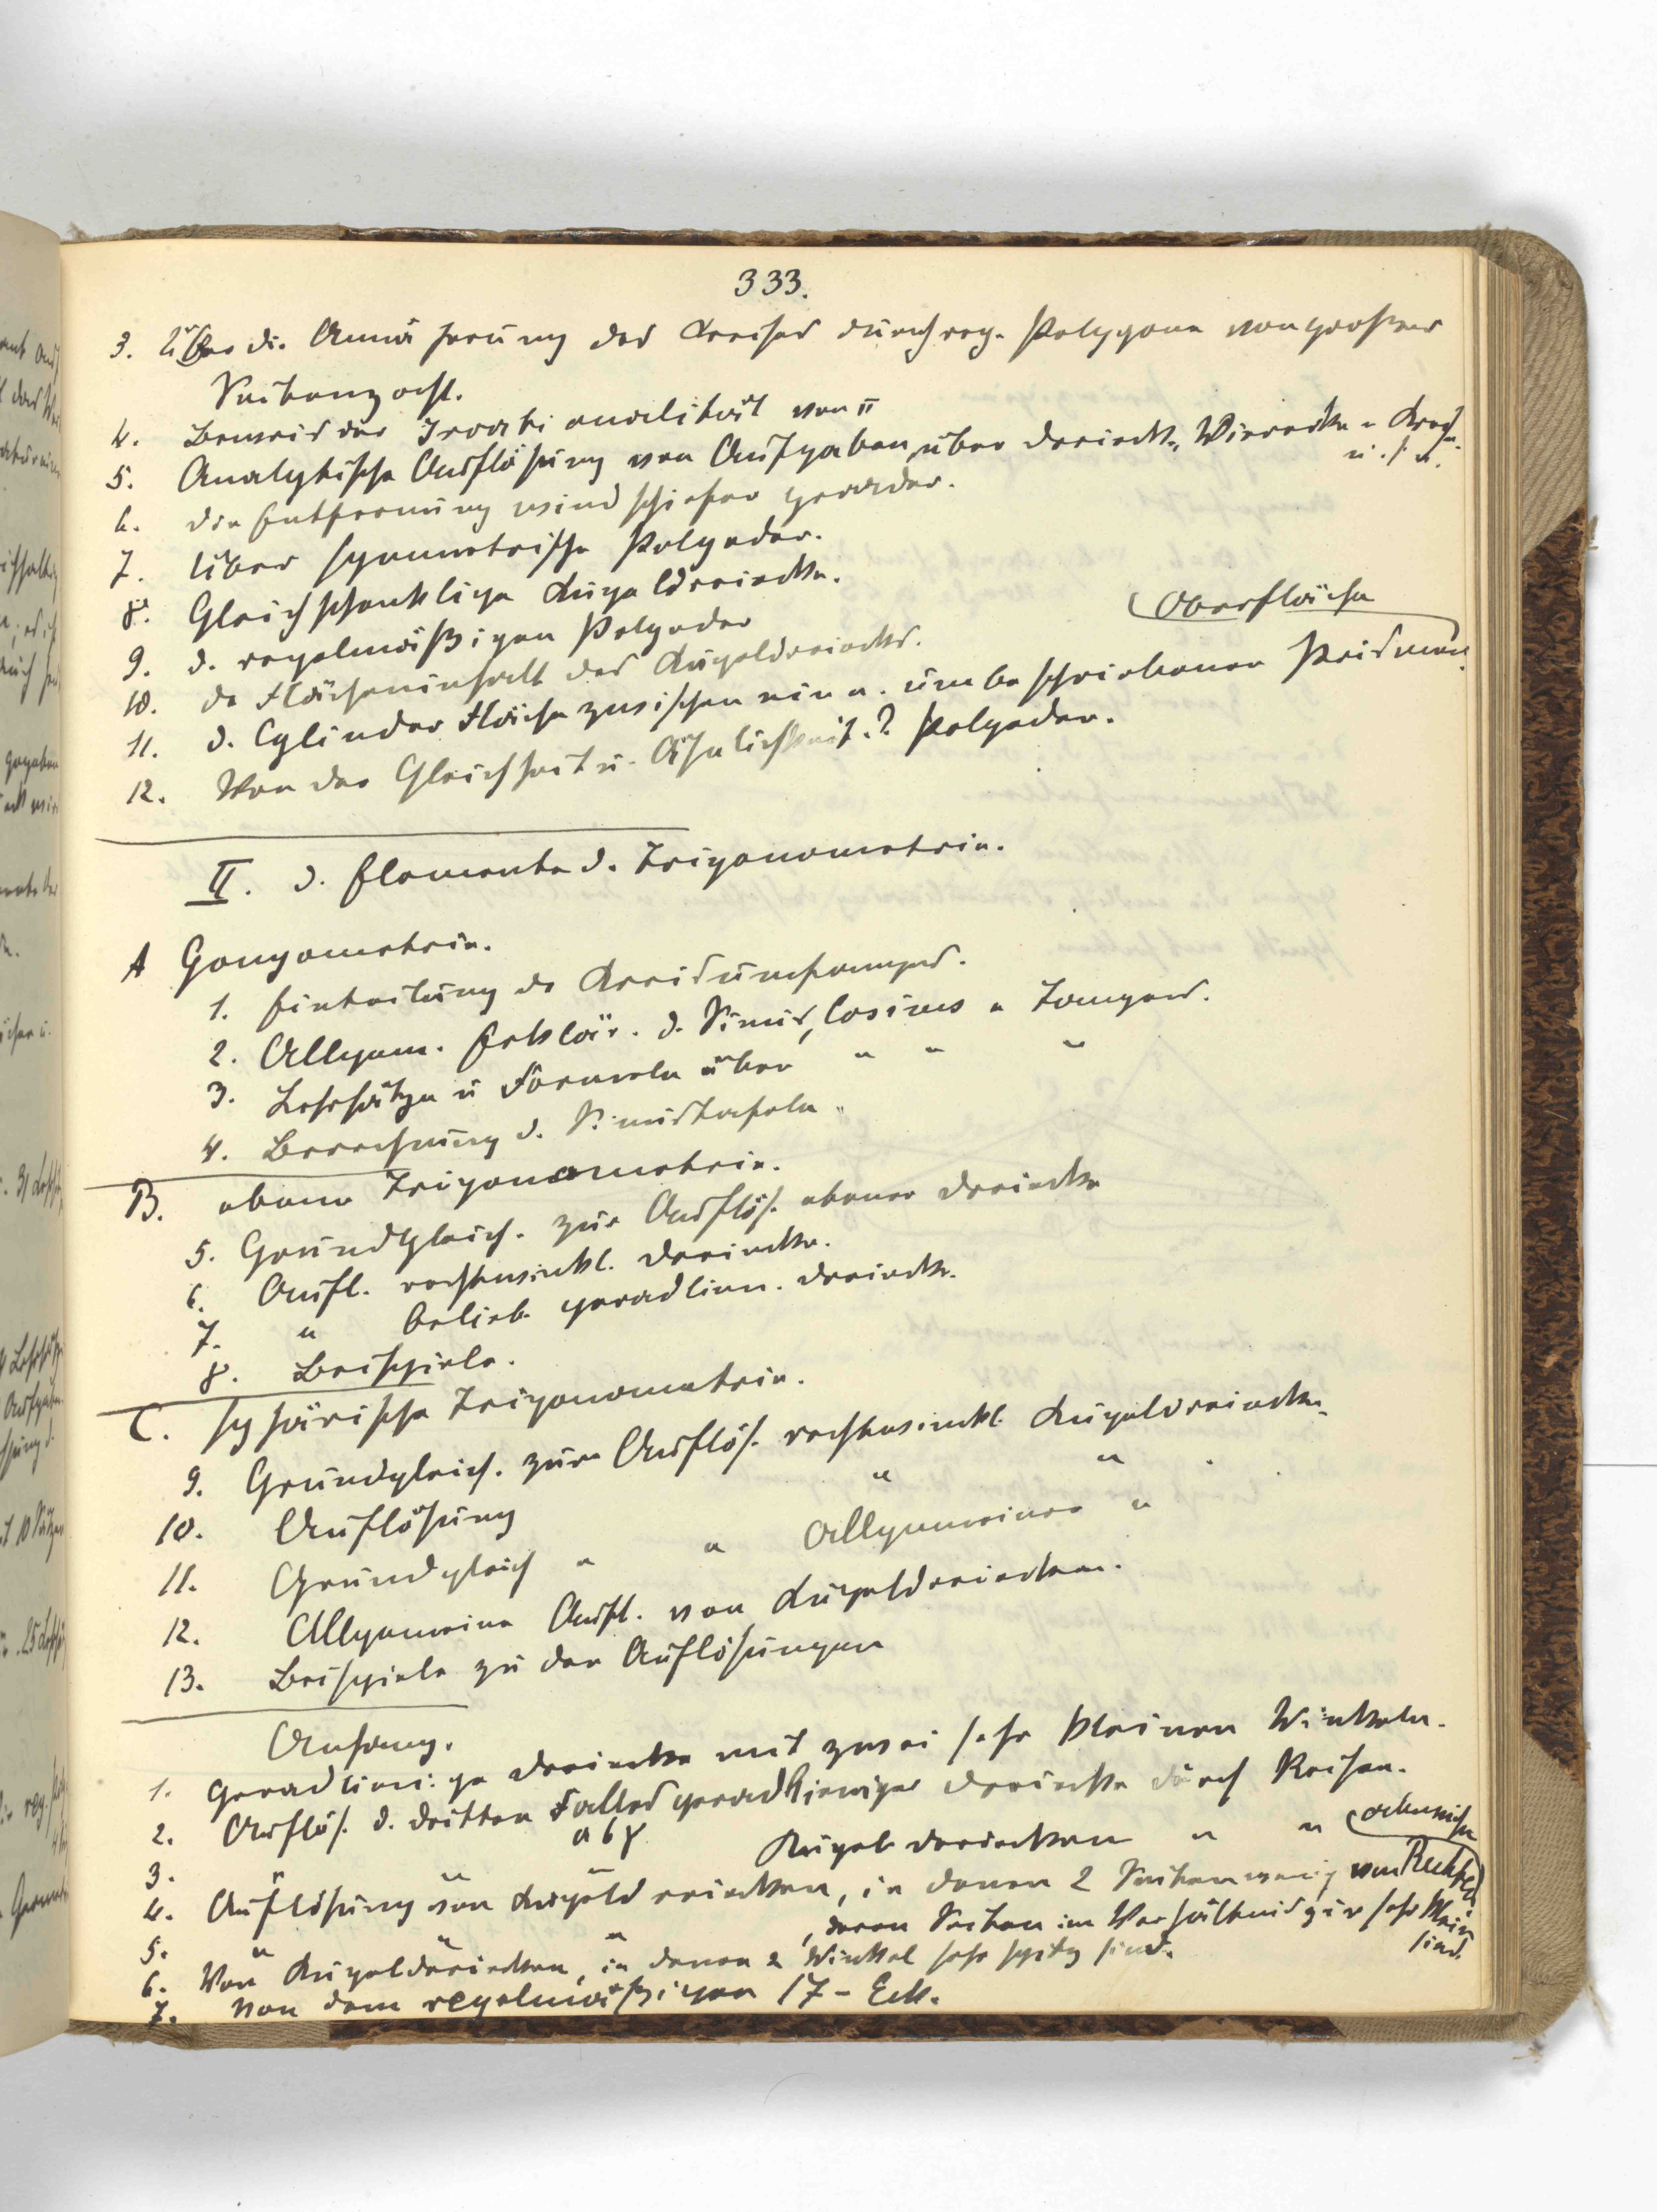 333.
3. Über di. Annäherung des Kreises durch reg. Polygone von großer
Seitenzahl.
4. Beweis der Irrationalität von π
5. Analytische Auflösung von Aufgaben über Dreiecke, Vierecke u Kreise
u. s. w.
6. Die Entfernung windschiefer Gerader.
7. Über symmetrische Polyeder.
8. Gleichschenklige Kugeldreiecke.
9. d. regelmäßigen Polyeder
10. De Flächeninhalt des Kugeldreiecks.
Oberfläche
11. d. Cylinder Fläche zwischen ein u. umbeschriebener Prismen
12. Von der Gleichheit u. Ähnlichkeit.? Polyeder.
II. d. Elemente d. Trigonometrie.
A Gongometrie.
1. Einteilung de Kreisumfanges.
2. Allgem. Erklär. d. Sinus, Cosinus u Tangens.
3. Lehrsätze u Formeln über " " "
4. Berechnung d. Sinustafeln.
B. ebene Trigonometrie.
5. Grundgleich. zur Auflös. ebener Dreiecke
6. Aufl. rechtwinkl. Dreiecke.
7. " belieb. geradlien. Dreieck.
8. Beispiele.
C. sphärische Trigonometrie.
9. Grundgleich. zur Auflös. rechtwinkl. Kugeldreiecke.
10. Auflösung " "
11. Grundgleich " " Allgemeiner "
12. Allgemeine Aufl. von Kugeldreiecken.
13. Beispiele zu den Auflösungen
Anhang.
1. Geradlinige Dreiecke mit zwei sehr kleinen Winkeln.
2. Auflös. d. dritten Falles geradliniger Dreiecke durch Reihen.
a b γ
3. " " " Kugeldreiecken " "
4. Auflösung von Kugeldreiecken, in denen 2 Seiten wenig von Rechten
abweichen
5. " " " , deren Seiten im Verhältnis zur sehr klein
sind.
6. Von Kugeldreiecken, in denen 2 Winkel sehr spitz sind.
7. Von dem regelmäßigen 17-Eck.